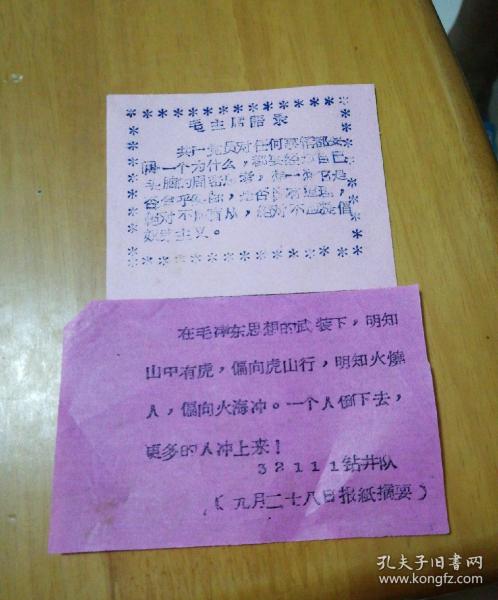 毛主席语录
共产党员对任何事情都要
问一个为什么，都要经过自己
头脑的周密思考，想一想它是
否合乎实际，是否真有道理，
绝对不应盲从，绝对不应提倡
奴隶主义。
在毛泽东思想的武装下，明知
山中有虎，偏向虎山行，明知火燒
人，偏向火海冲。一个人倒下去，
更多的人冲上来！
32111钻井队
（九月二十八日报紙摘要）
孔夫子旧书网
www.kongfz.com